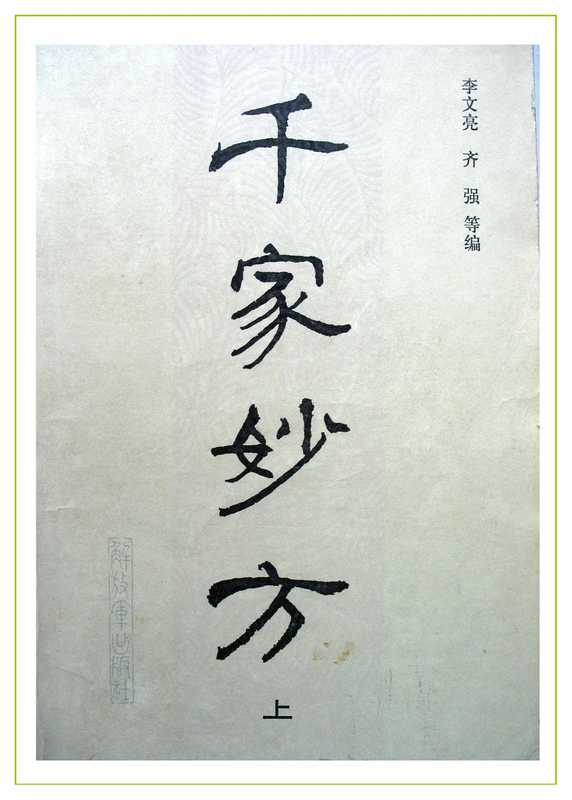 李文亮 齐强等编
千家妙方
上
解放军出版社